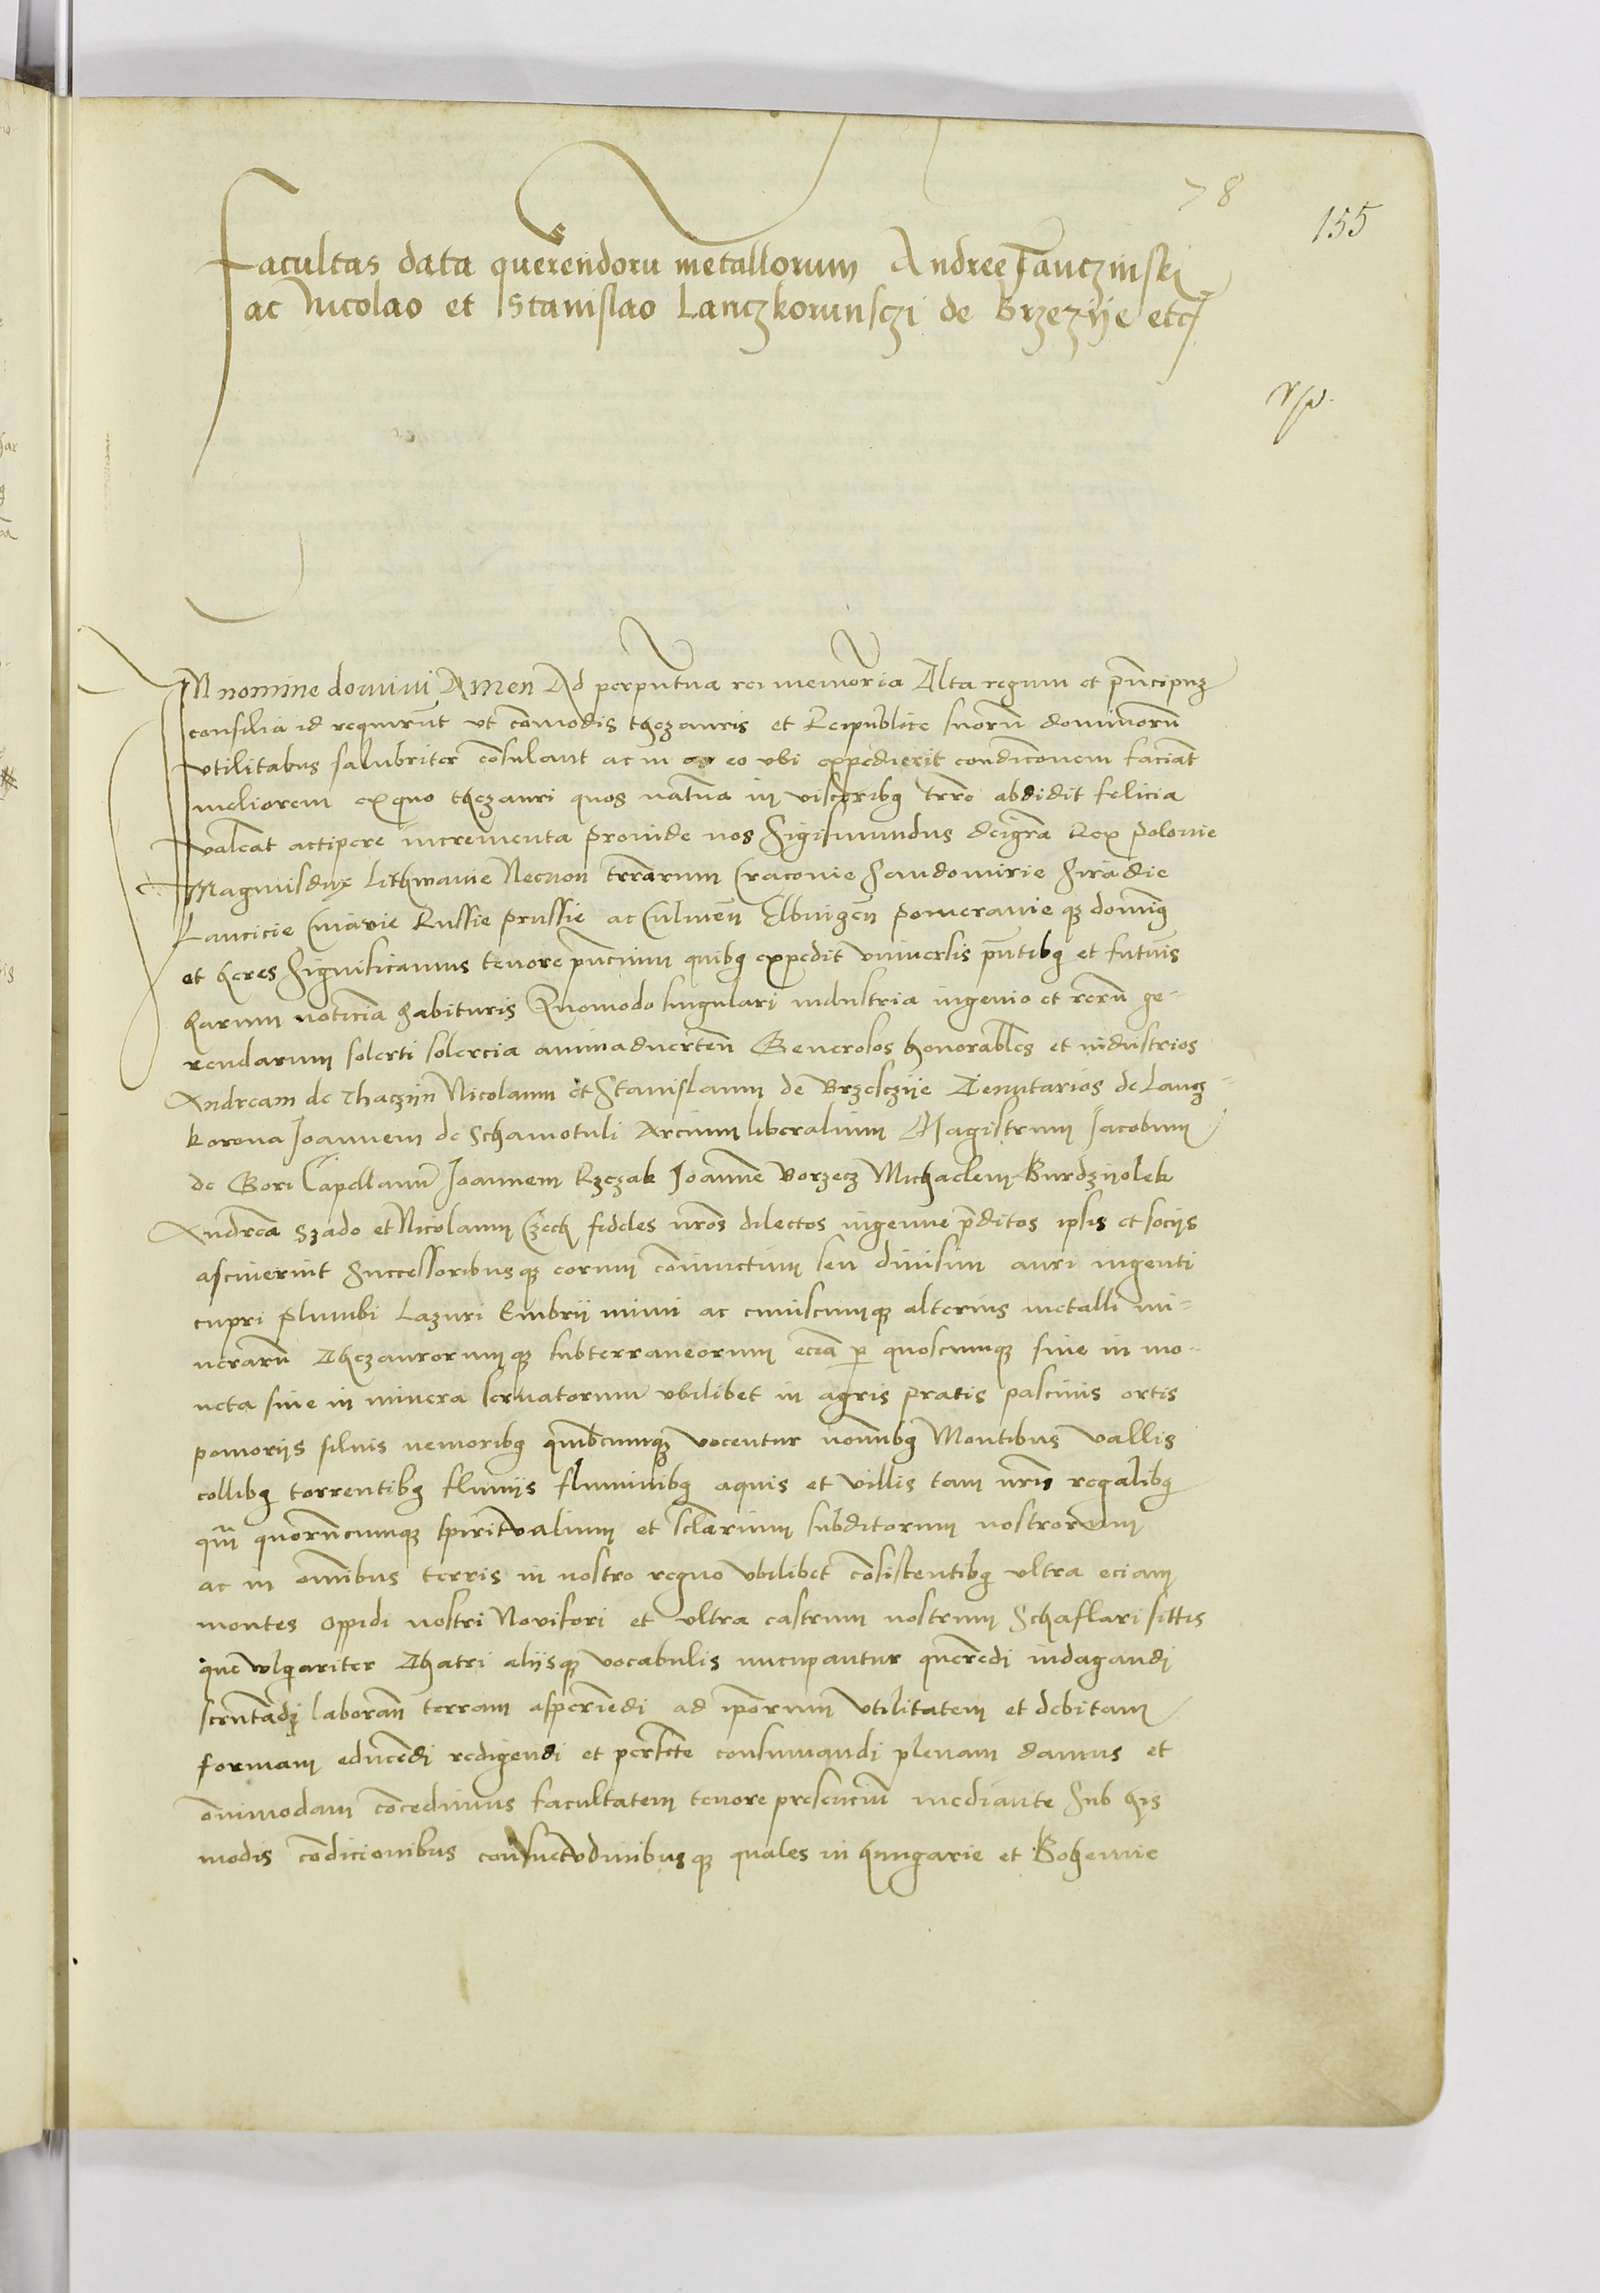 78
155
Facultas data querendoru metallorum Andree Tanczinski
ac Nicolao et Stanislao Lanczkorunsczi de Brzezije etc
In nomine domini Amen Ad perpetua rei memoria Alta regum et pncipuz
consilia id requirut vt comodis thezauris et Reipublice suoru dominoru
vtilitabus salubriter consulant ac in eo vbi expedierit condiconem faciat
meliorem ex quo thezauri quos natura in visceribq trre abdidit felicia
valeat accipere incrementa Proinde nos Sigismundus dei gra Rex Polonie
Magnus dux Lithwanie Necnon trrarum Cracovie Sandomirie Siradie
Lancicie Cuiavie Russie Prussie ac Culmen Elbingen Pomeranie qz domiq
et heres Significamus tenore pncium quibq expedit vniversis pntibq et futuris
harum noticia habituris Quomodo singulari industria ingenio et reru ge-
rendarum solerti solercia animadverten Generosos honorabiles et industrios
Andream de Thaczijn Nicolaum et Stanislaum de Brzesczije Tenutarios de Lancz-
korona Joannem de Schamotuli Arcium liberalium Magistrum Jacobum
de Gori Capellanu Joannem Rzezak Joanne Borzecz Michaelem Burdzijolek
Andrea Szado et Nicolaum Czech fideles nros dilectos ingenue pditos ipsis et socijs
asciverint Successoribusqz eorum coniunctim seu divisim auri ingenti
cupri plumbi Lazuri Embrii mini ac cuiuscumqz alterius metalli mi-
neraru Thezaurorumqz subterraneorum ecia p quoscumqz sive in mo-
neta sive in minera servatorum vbilibet in agris pratis pascuis ortis
pomorijs silvis nemoribq quibcumqz vocentur nominibq Montibus vallis
collibq torrentibq fluvijs fluminibq aquis et villis tam nris regalibq
qm quorucumqz spiritvalium et sclarium subditorum nostrorum
ac in omibus terris in nostro regno vbilibet cosistentibq vltra eciam
montes oppidi nostri Novifori et vltra castrum nostrum Schaflari sittis
que wlgariter Thatri alijsqz vocabulis nucupantur queredi indagandi
scrutadi laboran terram asperiedi ad iporum vtilitatem et debitam
formam educedi redigendi et perfecte consumandi plenam damus et
omimodam cocedimus facultatem tenore presenciu mediante Sub his
modis condicionibus consuetvdinibusqz quales in hungarie et Bohemie